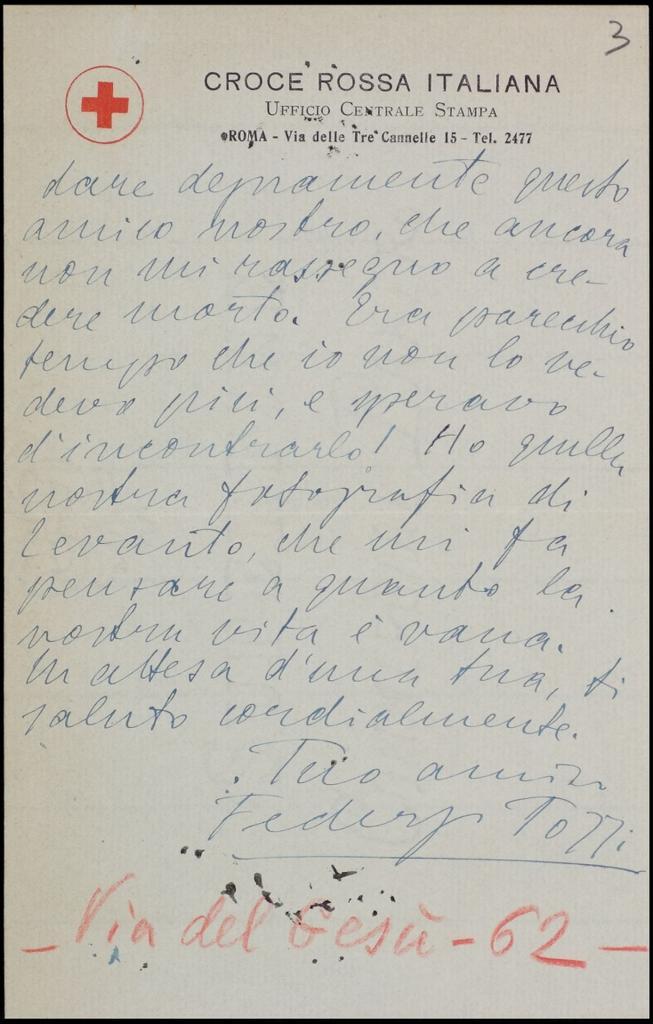 3
CROCE ROSSA ITALIANA
UFFICIO CENTRALE STAMPA
ROMA - Via delle Tre Cannelle 15 - Tel. 2477
dare degnamente questo
amico nostro, che ancora
non mi rassegno a cre-
dere morto. Era parecchio
tempo che io non lo ve-
devo più, e speravo
d'incontrarlo! Ho quella
nostra fotografia di
Levanto, che mi fa
pensare a quanto la
nostra vita è vana.
In attesa d'una tua, ti
saluto cordialmente.
Tuo amico
Federigo Tozzi
- Via del Gesù - 62 -